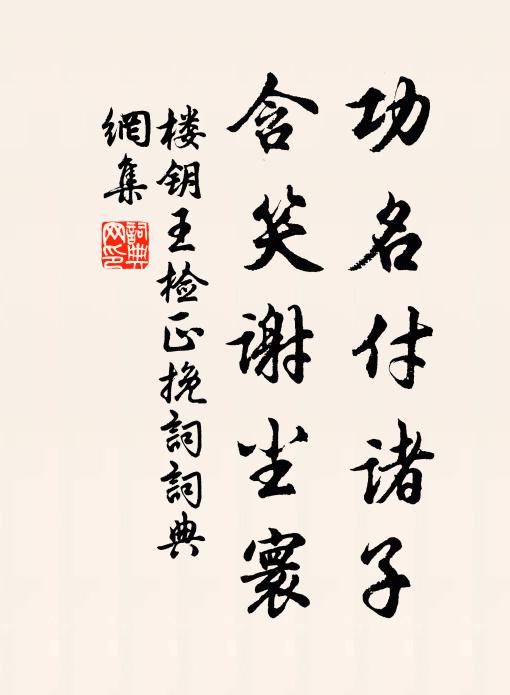 功名付诸子
含笑谢尘寰
楼钥王检正挽詞詞典
網集
詞典
网印